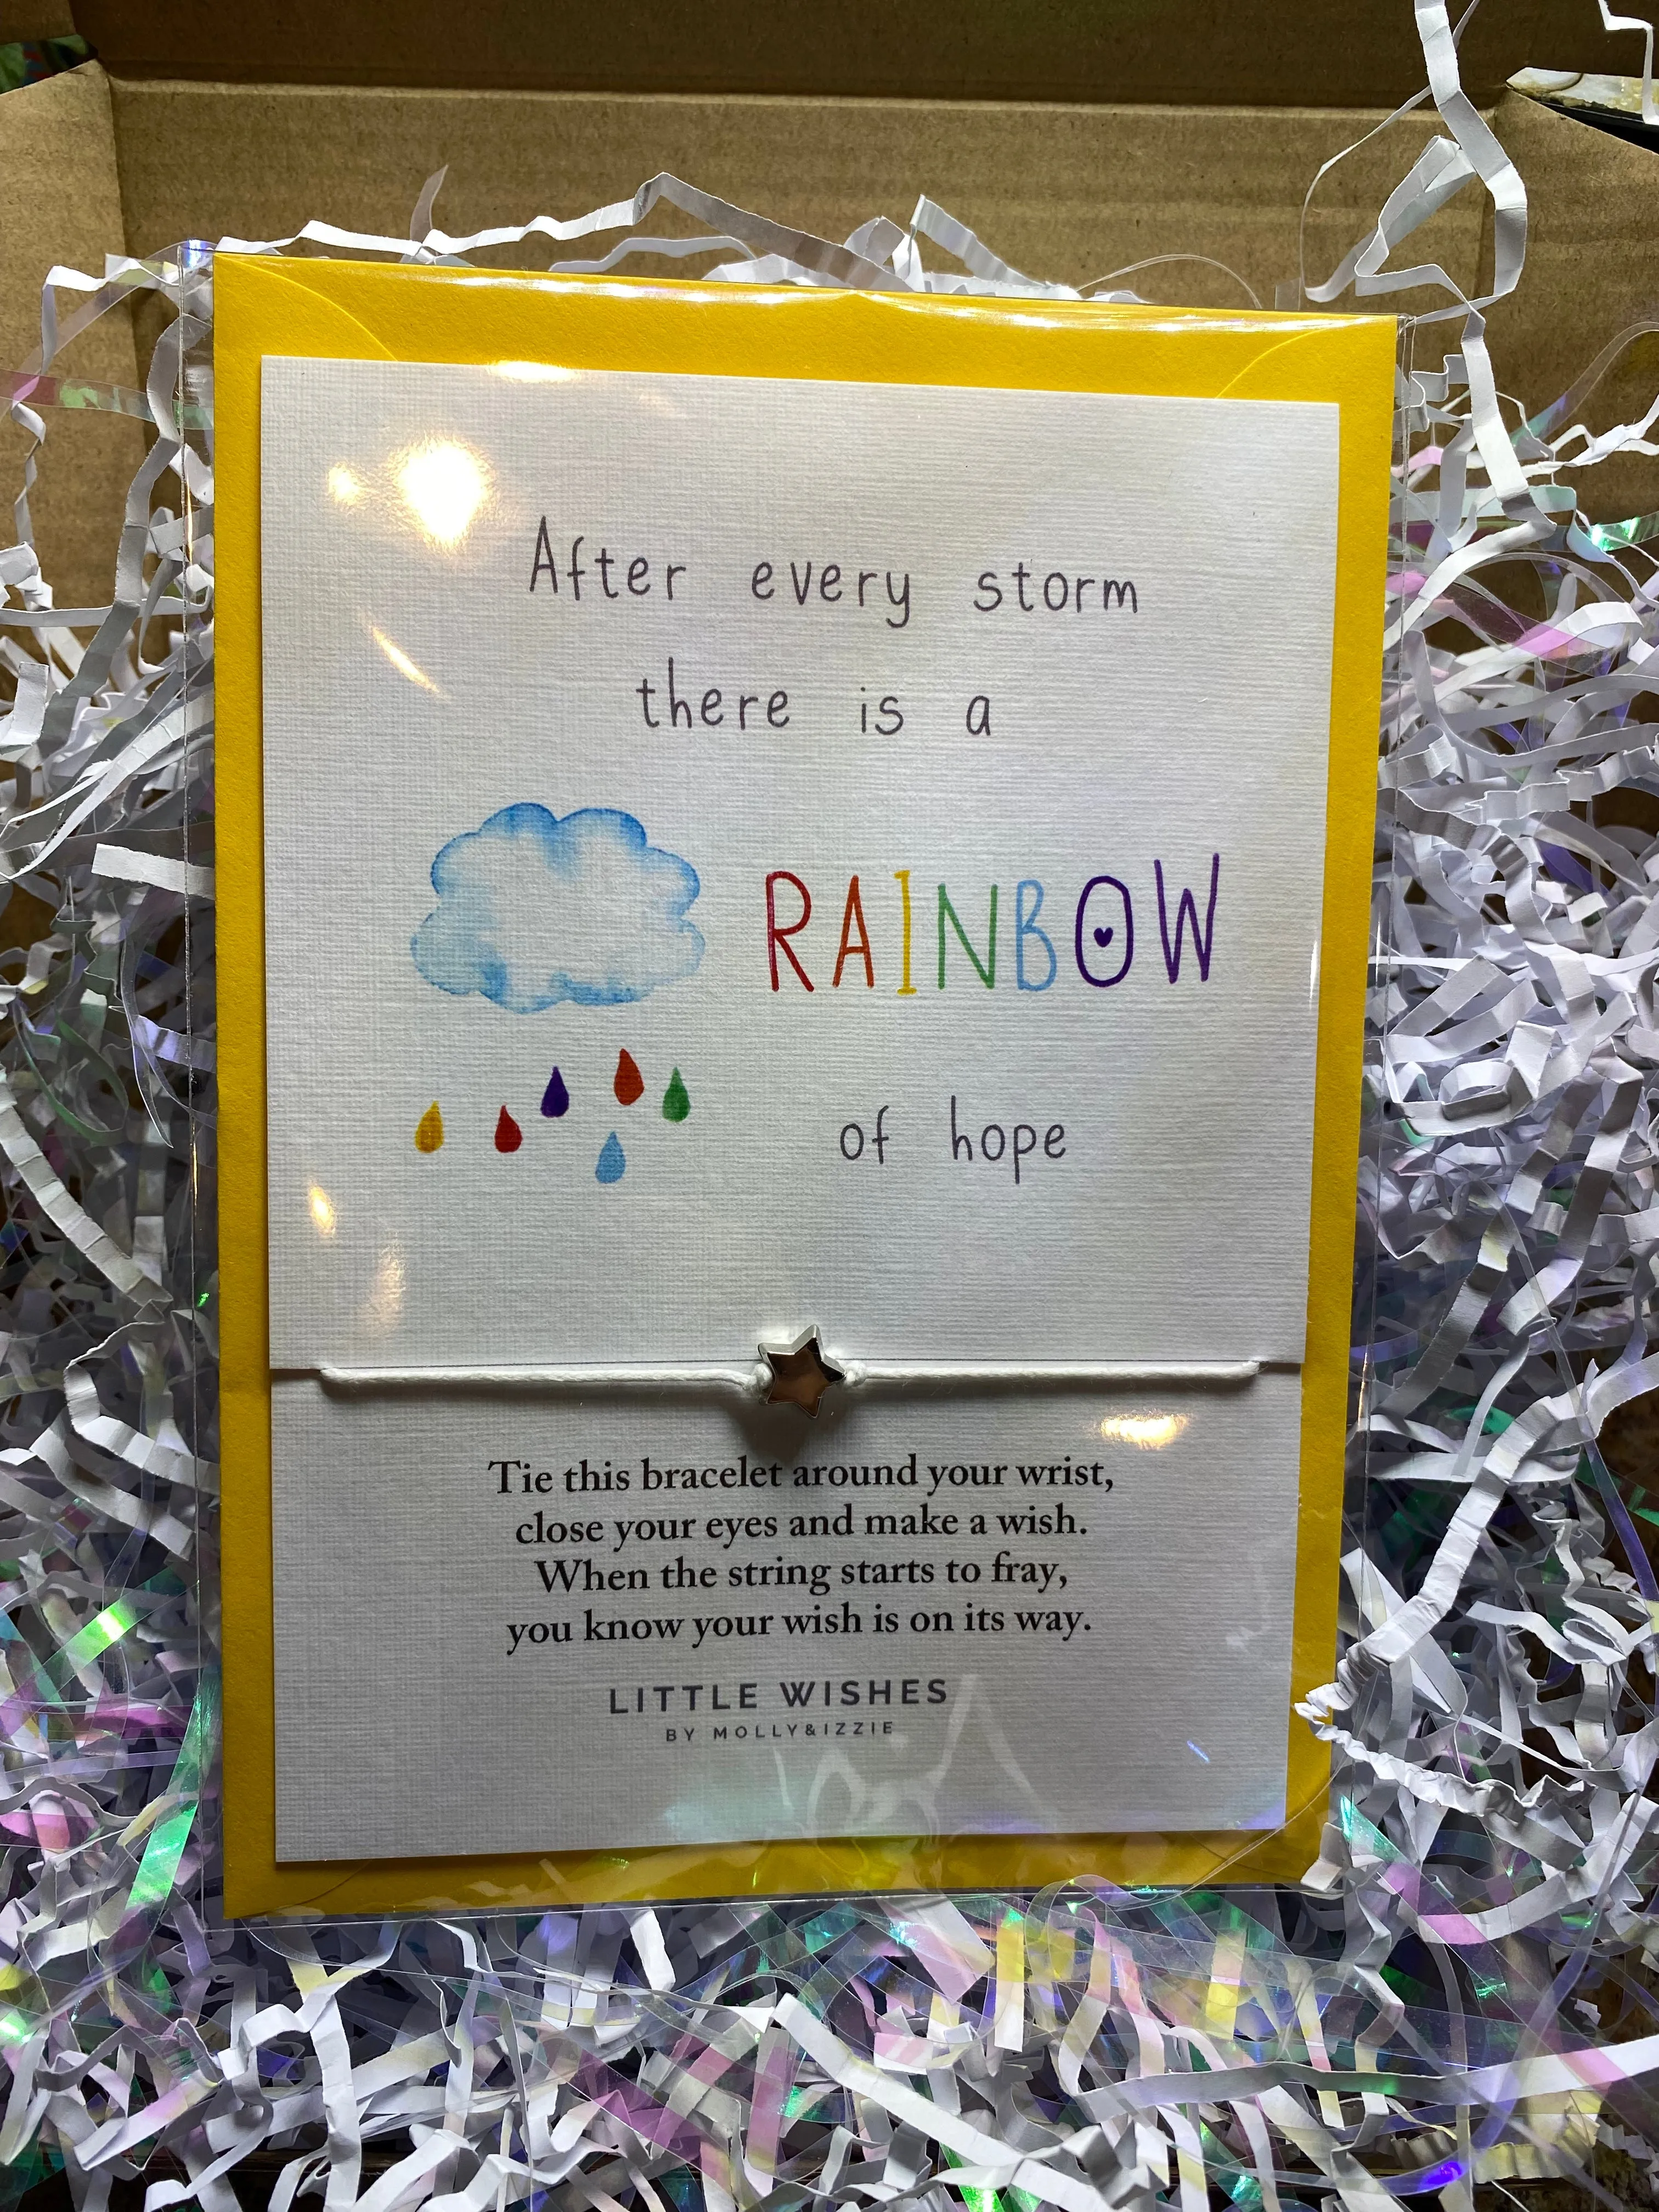 After every storm
there is a
RAINBOW
of hope
Tie this bracelet around your wrist,
close your eyes and make a wish.
When the string starts to fray,
you know your wish is on its way.
LITTLE WISHES
BY MOLLY&IZZIE